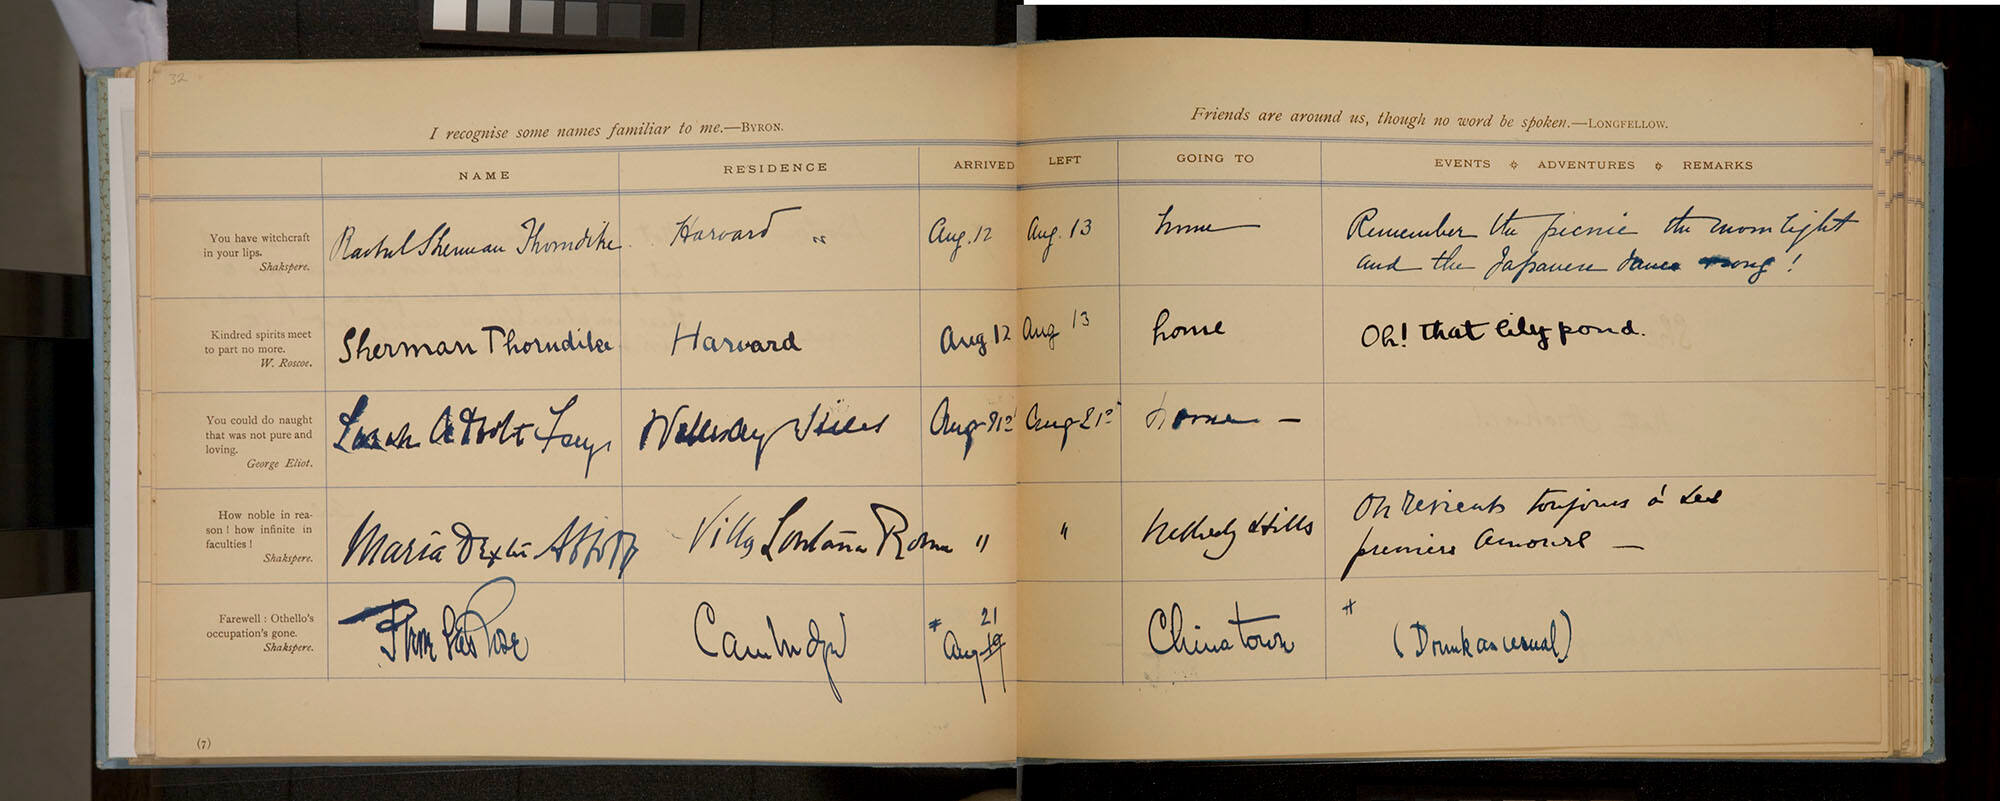 32
I recognise some names familiar to me.—BYRON.
Friends are around us, though no word be spoken.—LONGFELLOW.
NAME RESIDENCE ARRIVED LEFT GOING TO EVENTS ADVENTURES REMARKS
You have witchcraft
in your lips.
Shakspere.
Rachel Sherman Thorndike Harvard " Aug. 12 Aug. 13 home Remember the picnic the moonlight
and the Japanese song!
Kindred spirits meet
to part no more.
W. Roscoe.
Sherman Thorndike Harvard Aug 12 Aug 13 home Oh! that lily pond.
You could do naught
that was not pure and
loving.
George Eliot.
Sarah Wellesley Hills Aug 21st Aug 21st home —
How noble in rea-
son! how infinite in
faculties!
Shakspere.
Maria Dexter Villa Roma " " Hills On revient toujours à ses
premiers amours —
Farewell: Othello's
occupation's gone.
Shakspere.
Cambridge Aug 19 21 Chinatown (Drunk as usual)
(7)